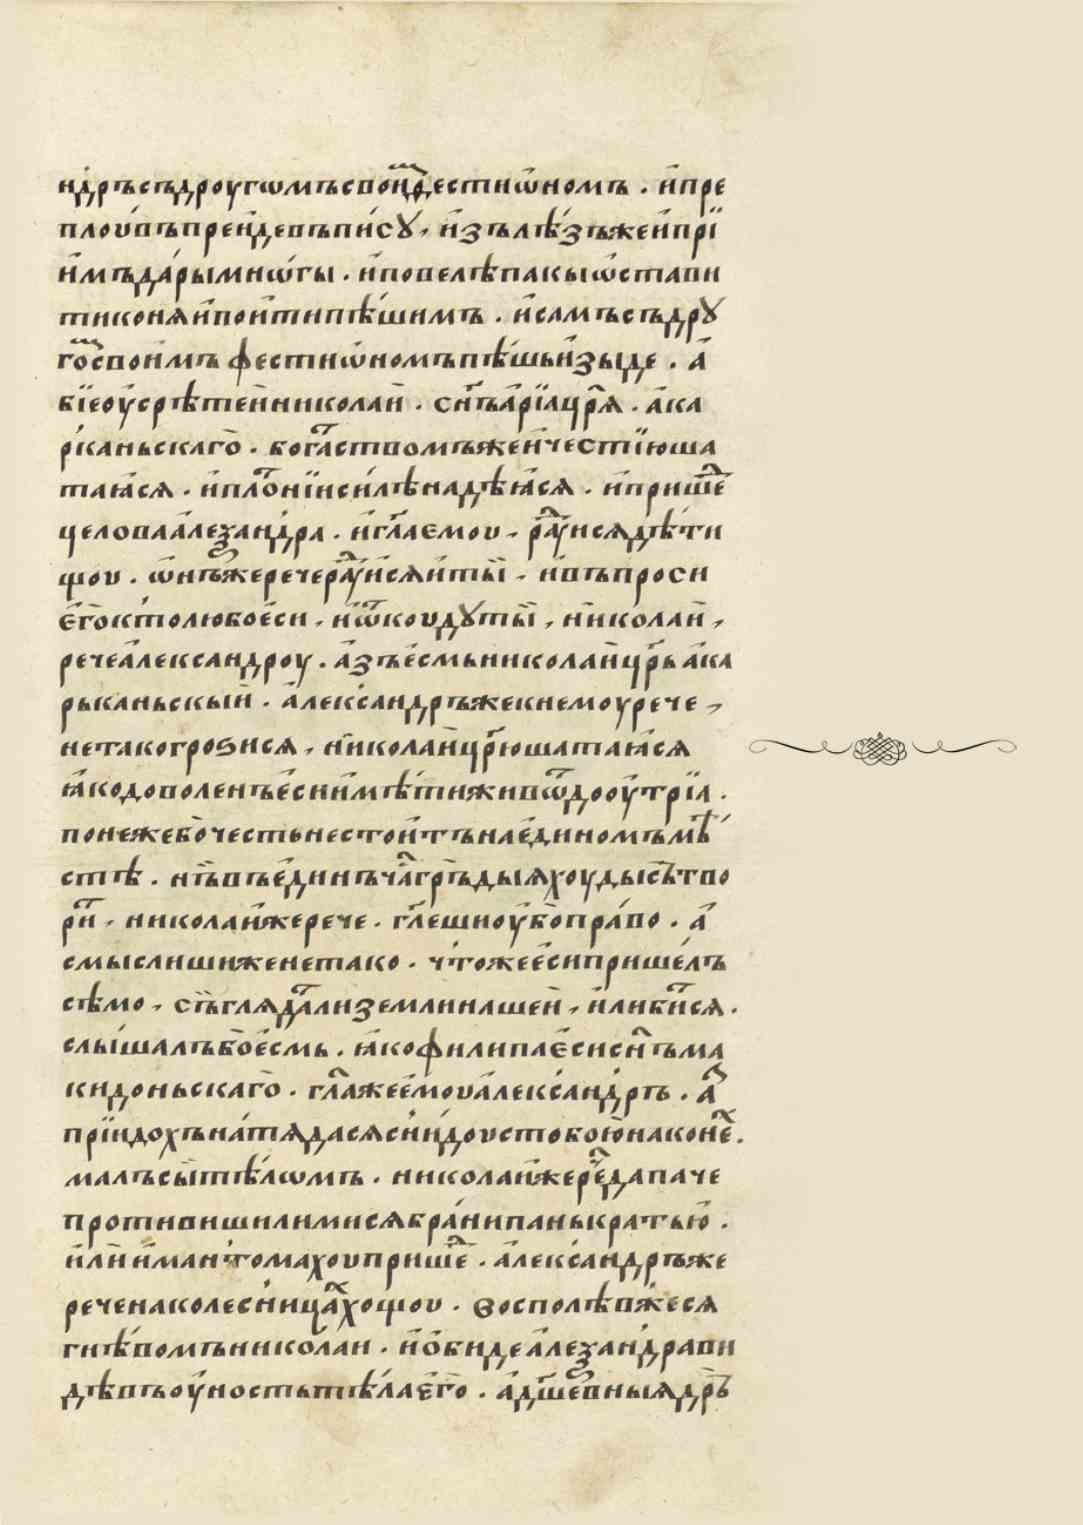 ндръсъдроугѡмъсвоимфестиѡномъ · ипре
плоувъпреидевъпису, изълѣзъжеипрї
имъдарымнѡгы · иповелѣпакыѡстави
тиконяипоитипѣшимъ · исамъсъдру
гомсвоимъфестиѡномъпѣшьизыде · а
бїеоусрѣтеиниколаи · снъарїацря · ака
рканьскаго · богатствомъжеичестїюша
таяся · иплотнїисилѣнадѣяся · ипришед
целоваалеѯандра · иглаемоу, раⷣуисядѣти
щоу · ѡнъжеречераⷣуисяиты, ивъпроси
егоктолюбоеси, иѡткоудуты, николаи,
речеалександроу · азъесмьниколаицрьака
рьканьскыи · александръжекнемоурече,
нетакогроѕися, николаицрюшатаяся
якодоволенъесииимѣтиживѡтдооутрїа ·
понежебочестьнестоитънаединоммѣ
стѣ · нъвъединъчасгрѣдыяхоудысътво
рит, николаижерече · глешиоубоправо · а
смыслишиженетако · чтожеесипришелъ
сѣмо, съглядатлиземлинашеи, илибится ·
слышалъбоесмь · якофилипаесиснъма
кидоньскаго · глажеемоуалександръ · аз
прїидохънатядасяснидоустобоюнаконех ·
малъсытѣлѡмъ · николаижеречедапаче
противишилимисябранипанькратью ·
илииманътомахоупришед · александръже
реченаколесницаххощоу · восполѣвжеся
гнѣвомъниколаи · иобидеалеѯандрави
дѣвъоуностьтѣлаего · адшевныядръ